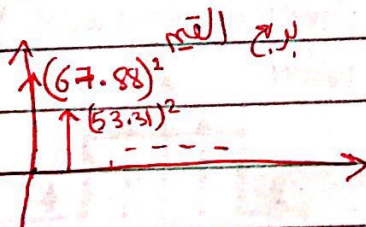 بربع القيم
(67.88)²
(53.31)²